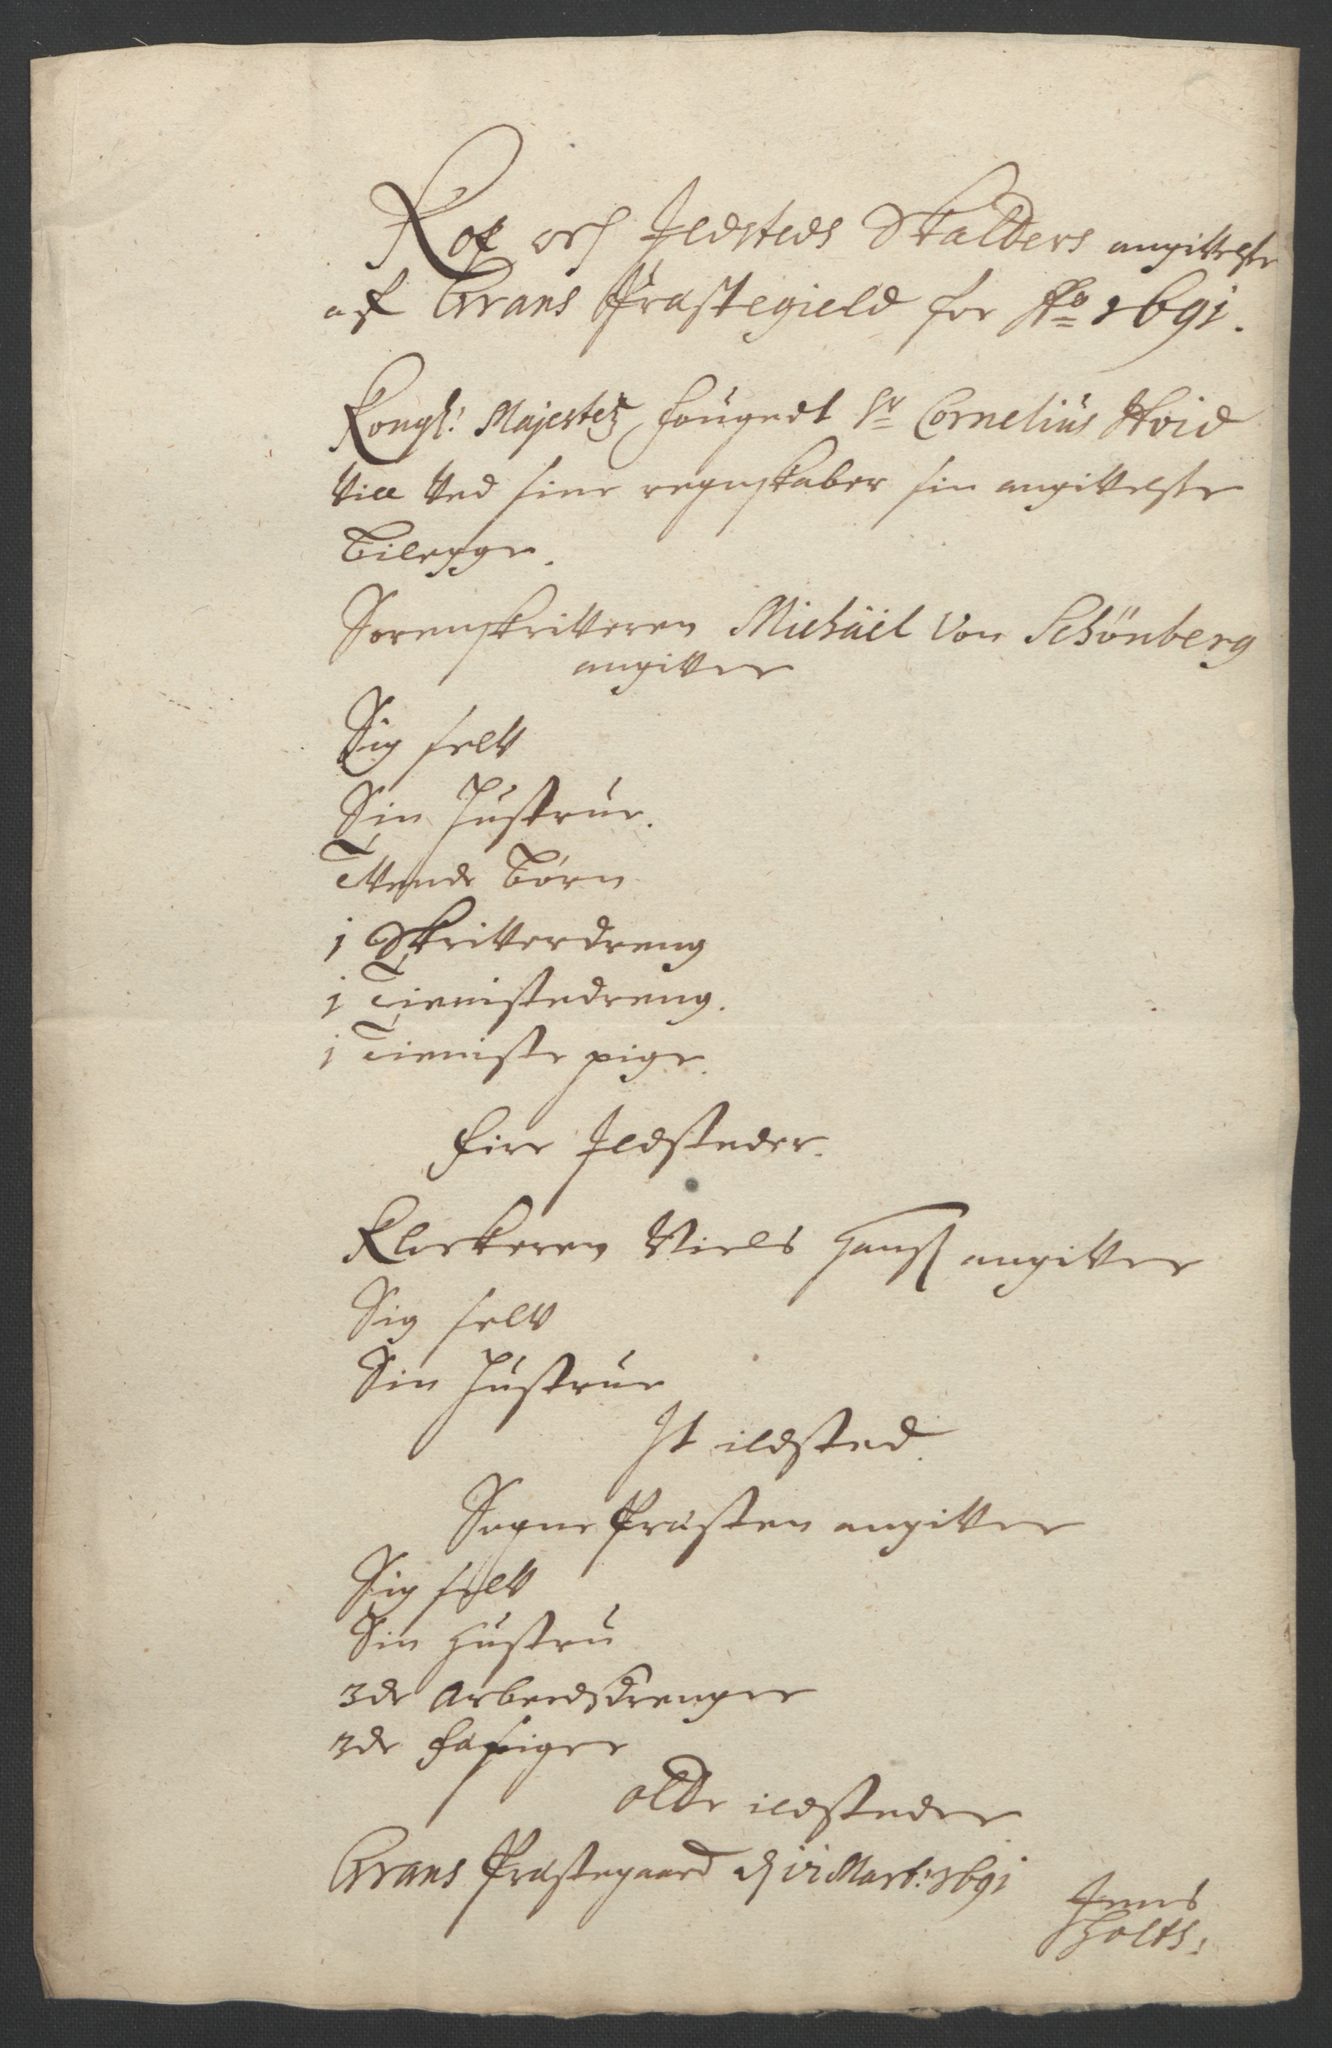 Kop och Ildsteds Skatters angiffvelse
af Grans Præstegield for Ao 1691.
Kongl: Majestetz fougedt Sr Cornelius Hvid
vill ved sine regnskaber sin angiffvelse
bilegge.
Sorenskrifveren Michäel Von Schönberg
angifver
Sig self
Sin Hustrue.
Tvende børn
1 Skrifverdreng
1 Tienistedreng.
1 Tieniste pige.
fire Ildsteder.
Klockeren Niels Hanss angifver
Sig self
Sin Hustrue
It ildsted.
Sogne Præsten angifver
Sig self
Sin Hustru
3de Arbeedsdrenge
3de piger
otte ildsteder
Grans Præstegaard d 12 Marti 1691
Jens
Holts.